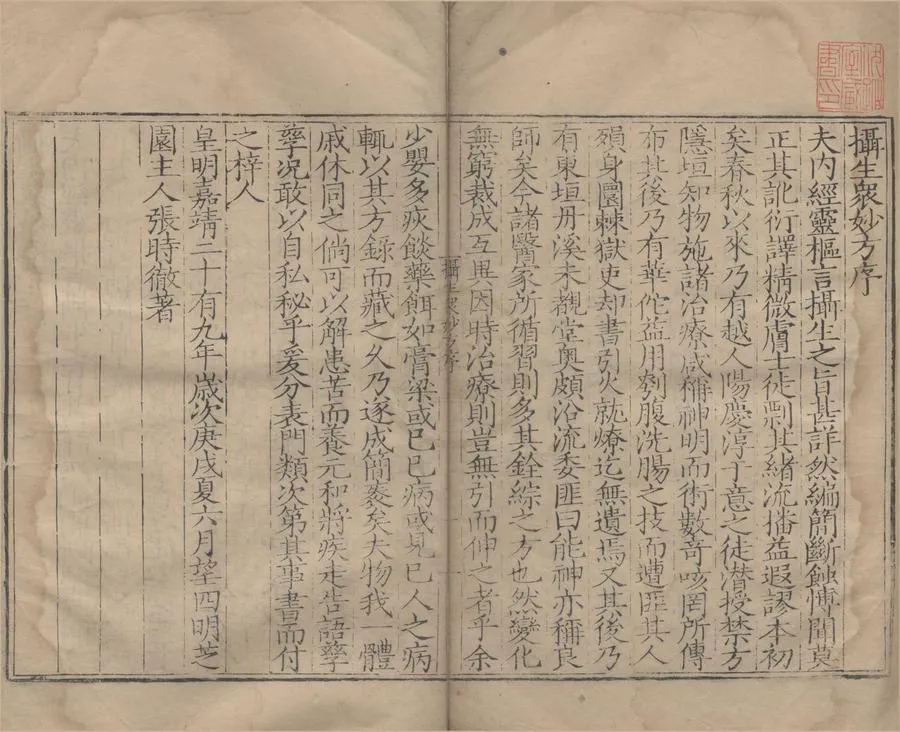 攝生衆妙方序
夫內經靈樞言攝生之旨甚詳然編簡斷蝕愽聞莫
正其訛衍譯精微膚士徒剽其緒流播益遐謬本初
矣春秋以來乃有越人陽慶淳于意之徒潜授禁方
隱垣知物施諸治療咸稱神明而術數竒咳罔所傳
布其後乃有華佗益用刳腹洗腸之技而遭匪其人
殞身圜棘獄吏却書引火就燎迄無遺焉又其後乃
有東垣丹溪未覩堂奥頗沿流委匪曰能神亦稱良
師矣今諸醫家所循習則多其銓綜之方也然變化
無窮裁成互異因時治療則豈無引而伸之者乎余
少嬰多疢餤藥餌如膏梁或已巳病或見巳人之病
輒以其方錄而藏之久乃遂成簡袠矣夫物我一體
戚休同之倘可以解患苦而養元和將疾走告語孳
孳况敢以自私秘乎爰分表門類次第其事書而付
之梓人
皇明嘉靖二十有九年歳次庚戌夏六月望四明芝
園主人張時徹著
攝生衆妙方序